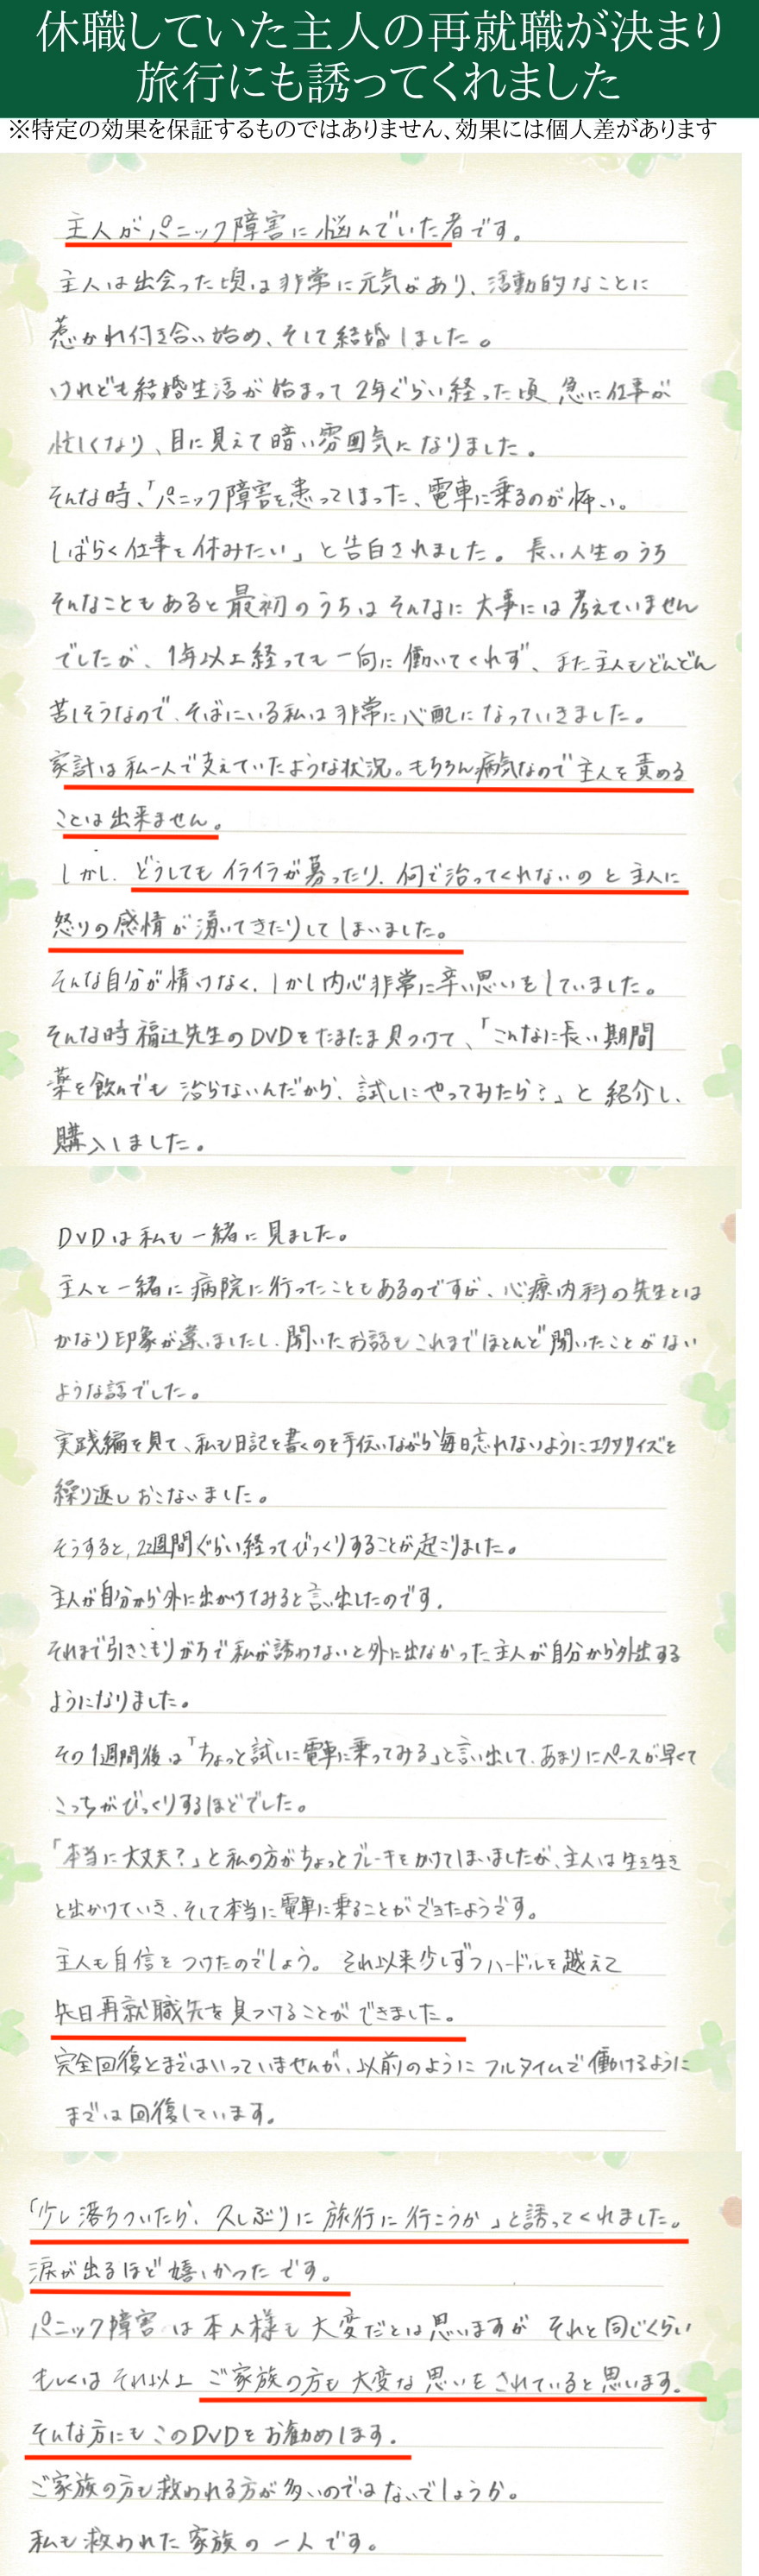 休職していた主人の再就職が決まり
旅行にも誘ってくれました
※特定の効果を保証するものではありません、効果には個人差があります
主人がパニック障害に悩んでいた者です。
主人は出会った頃は非常に元気があり、活動的なことに
惹かれ付き合い始め、そして結婚しました。
けれども結婚生活が始まって2年ぐらい経った頃 急に仕事が
忙しくなり、目に見えて暗い雰囲気になりました。
そんな時、「パニック障害を患ってしまった、電車に乗るのが怖い。
しばらく仕事を休みたい」と告白されました。長い人生のうち
そんなこともあると最初のうちはそんなに大事には考えていません
でしたが、1年以上経っても一向に働いてくれず、また主人もどんどん
苦しそうなので、そばにいる私は非常に心配になっていきました。
家計は私一人で支えていたような状況。もちろん病気なので主人を責める
ことは出来ません。
しかし、どうしてもイライラが募ったり、何で治ってくれないのと主人に
怒りの感情が湧いてきたりしてしまいました。
そんな自分が情けなく、しかし内心非常に辛い思いをしていました。
そんな時福辻先生のDVDをたまたま見つけて、「こんなに長い期間
薬を飲んでも治らないんだから、試しにやってみたら?」と紹介し、
購入しました。
DVDは私も一緒に見ました。
主人と一緒に病院に行ったこともあるのですが、心療内科の先生とは
かなり印象が違いましたし、聞いたお話もこれまでほとんど聞いたことがない
ような話でした。
実践編を見て、私も日記を書くのを手伝いながら毎日忘れないようにエクササイズを
繰り返しおこないました。
そうすると、2週間ぐらい経ってびっくりすることが起こりました。
主人が自分から外に出かけてみると言い出したのです。
それまで引きこもりがちで私が誘わないと外に出なかった主人が自分から外出する
ようになりました。
その1週間後は「ちょっと試しに電車に乗ってみる」と言い出して、あまりにペースが早くて
こっちがびっくりするほどでした。
「本当に大丈夫?」と私の方がちょっとブレーキをかけてしまいましたが、主人は生き生き
と出かけていき、そして本当に電車に乗ることができたようです。
主人も自信をつけたのでしょう。それ以来少しずつハードルを越えて
先日再就職先を見つけることができました。
完全回復とまではいっていませんが、以前のようにフルタイムで働けるように
までは回復しています。
「少し落ちついたら、久しぶりに旅行に行こうか」と誘ってくれました。
涙が出るほど嬉しかったです。
パニック障害は本人様も大変だとは思いますが それと同じくらい
もしくはそれ以上ご家族の方も大変な思いをされていると思います。
そんな方にもこのDVDをお勧めします。
ご家族の方も救われる方が多いのではないでしょうか。
私も救われた家族の一人です。